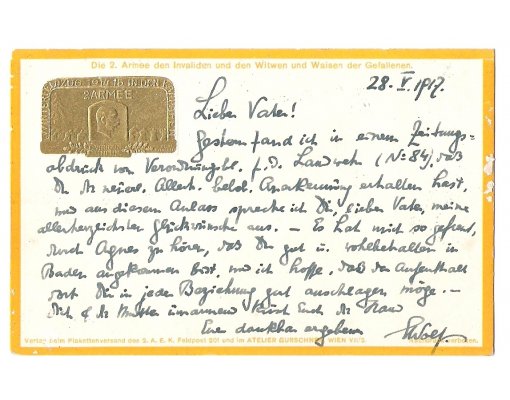 Die 2. Armee den Invaliden und den Witwen und Waisen der Gefallenen.
2. ARMEE
28. V. 1917.
Lieber Vater!
Gestern fand ich in einem Zeitungs-
abdruck von Verordnungsbl. f. d. Landwehr (Nº 84), daß
Du die Allerh. belob. Anerkennung erhalten hast,
und aus diesem Anlass spreche ich Dir, lieber Vater, meine
allerherzlichsten Glückwünsche aus. – Es hat mich so gefreut,
durch Agnes zu hören, daß Du gut u. wohlbehalten in
Baden angekommen bist, und ich hoffe, daß der Aufenthalt
dort Dir in jeder Beziehung gut anschlagen möge. –
Dich & die Mutter umarmend küsst Euch die
Euer dankbar ergebener
Verlag beim Plakettenversand des 2. A. E. K. Feldpost 501 und im ATELIER GURSCHNER WIEN VII/2.